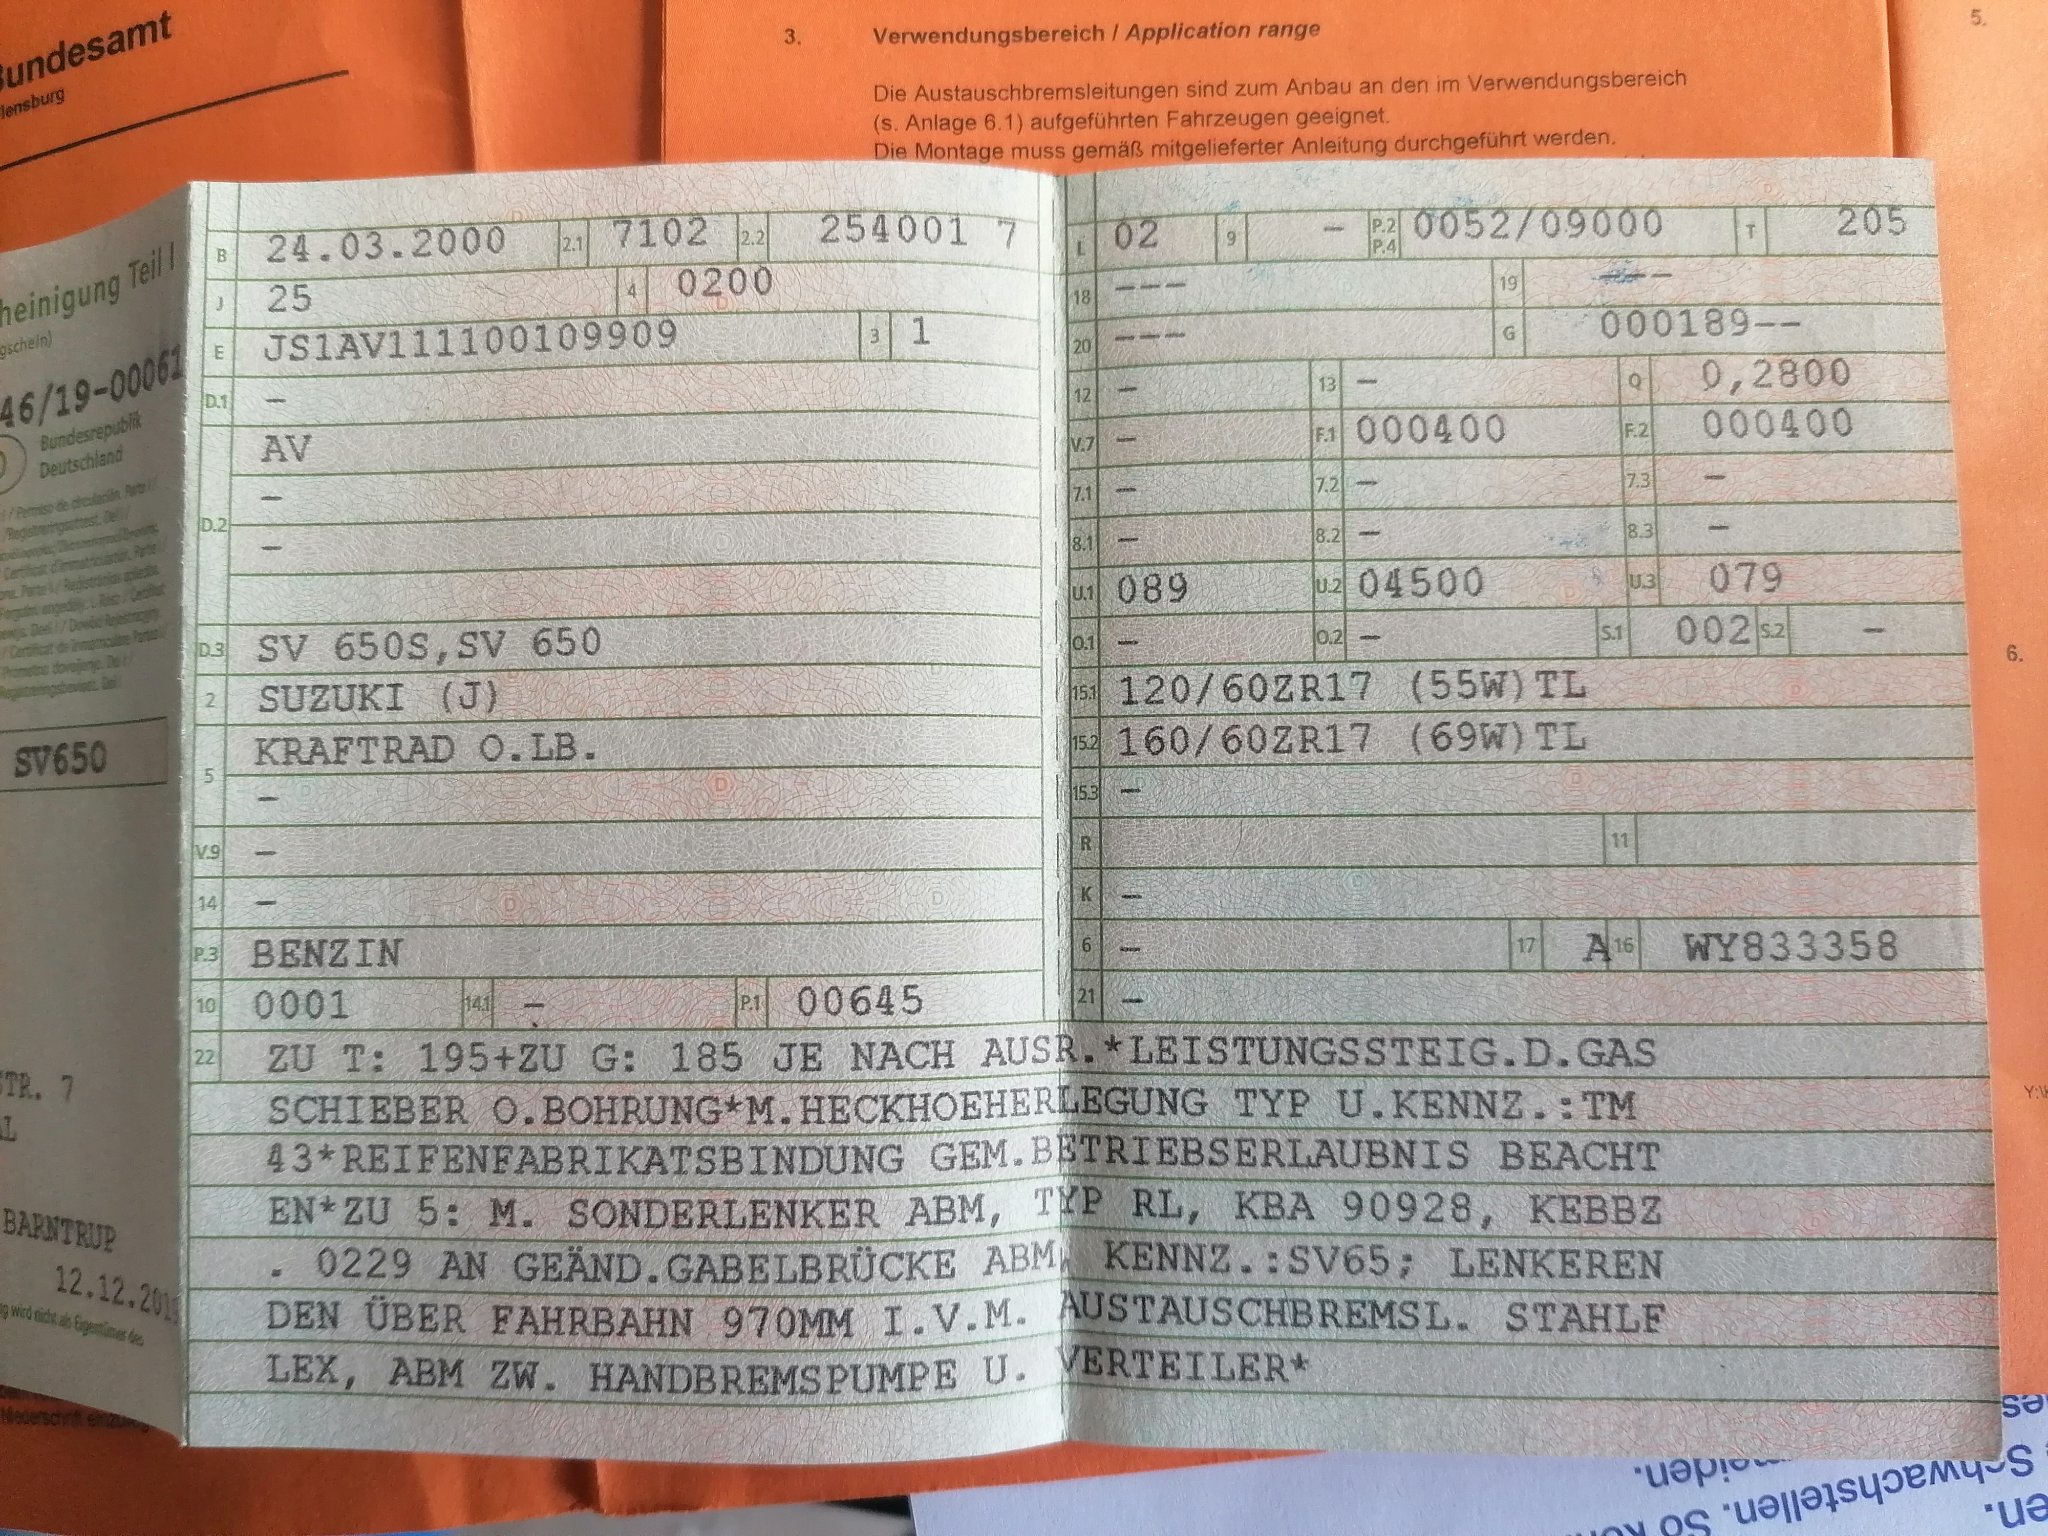 Bundesamt
lensburg
3. Verwendungsbereich / Application range
Die Austauschbremsleitungen sind zum Anbau an den im Verwendungsbereich
(s. Anlage 6.1) aufgeführten Fahrzeugen geeignet.
Die Montage muss gemäß mitgelieferter Anleitung durchgeführt werden.
5.
6.
heinigung Teil I
gschein)
46/19-00061
Bundesrepublik
Deutschland
SV650
STR. 7
BARNTRUP
12.12.201
B 24.03.2000 2.1 7102 2.2 254001 7
J 25 4 0200
E JS1AV111100109909 3 1
D.1 -
AV
-
D.2
-
D.3 SV 650S,SV 650
2 SUZUKI (J)
KRAFTRAD O.LB.
5
-
V.9 -
14 -
P.3 BENZIN
10 0001 14.1 - P.1 00645
L 02 9 - P.2 P.4 0052/09000 T 205
18 --- 19 ---
20 --- G 000189--
12 - 13 - Q 0,2800
V.7 - F.1 000400 F.2 000400
7.1 - 7.2 - 7.3 -
8.1 - 8.2 - 8.3 -
U.1 089 U.2 04500 U.3 079
O.1 - O.2 - S.1 002 S.2 -
15.1 120/60ZR17 (55W)TL
15.2 160/60ZR17 (69W)TL
15.3 -
R 11
K -
6 - 17 A 16 WY833358
21 -
22 ZU T: 195+ZU G: 185 JE NACH AUSR.*LEISTUNGSSTEIG.D.GAS
SCHIEBER O.BOHRUNG*M.HECKHOEHERLEGUNG TYP U.KENNZ.:TM
43*REIFENFABRIKATSBINDUNG GEM.BETRIEBSERLAUBNIS BEACHT
EN*ZU 5: M. SONDERLENKER ABM, TYP RL, KBA 90928, KEBBZ
. 0229 AN GEÄND.GABELBRÜCKE ABM, KENNZ.:SV65; LENKEREN
DEN ÜBER FAHRBAHN 970MM I.V.M. AUSTAUSCHBREMSL. STAHLF
LEX, ABM ZW. HANDBREMSPUMPE U. VERTEILER*
Schwachstellen. So